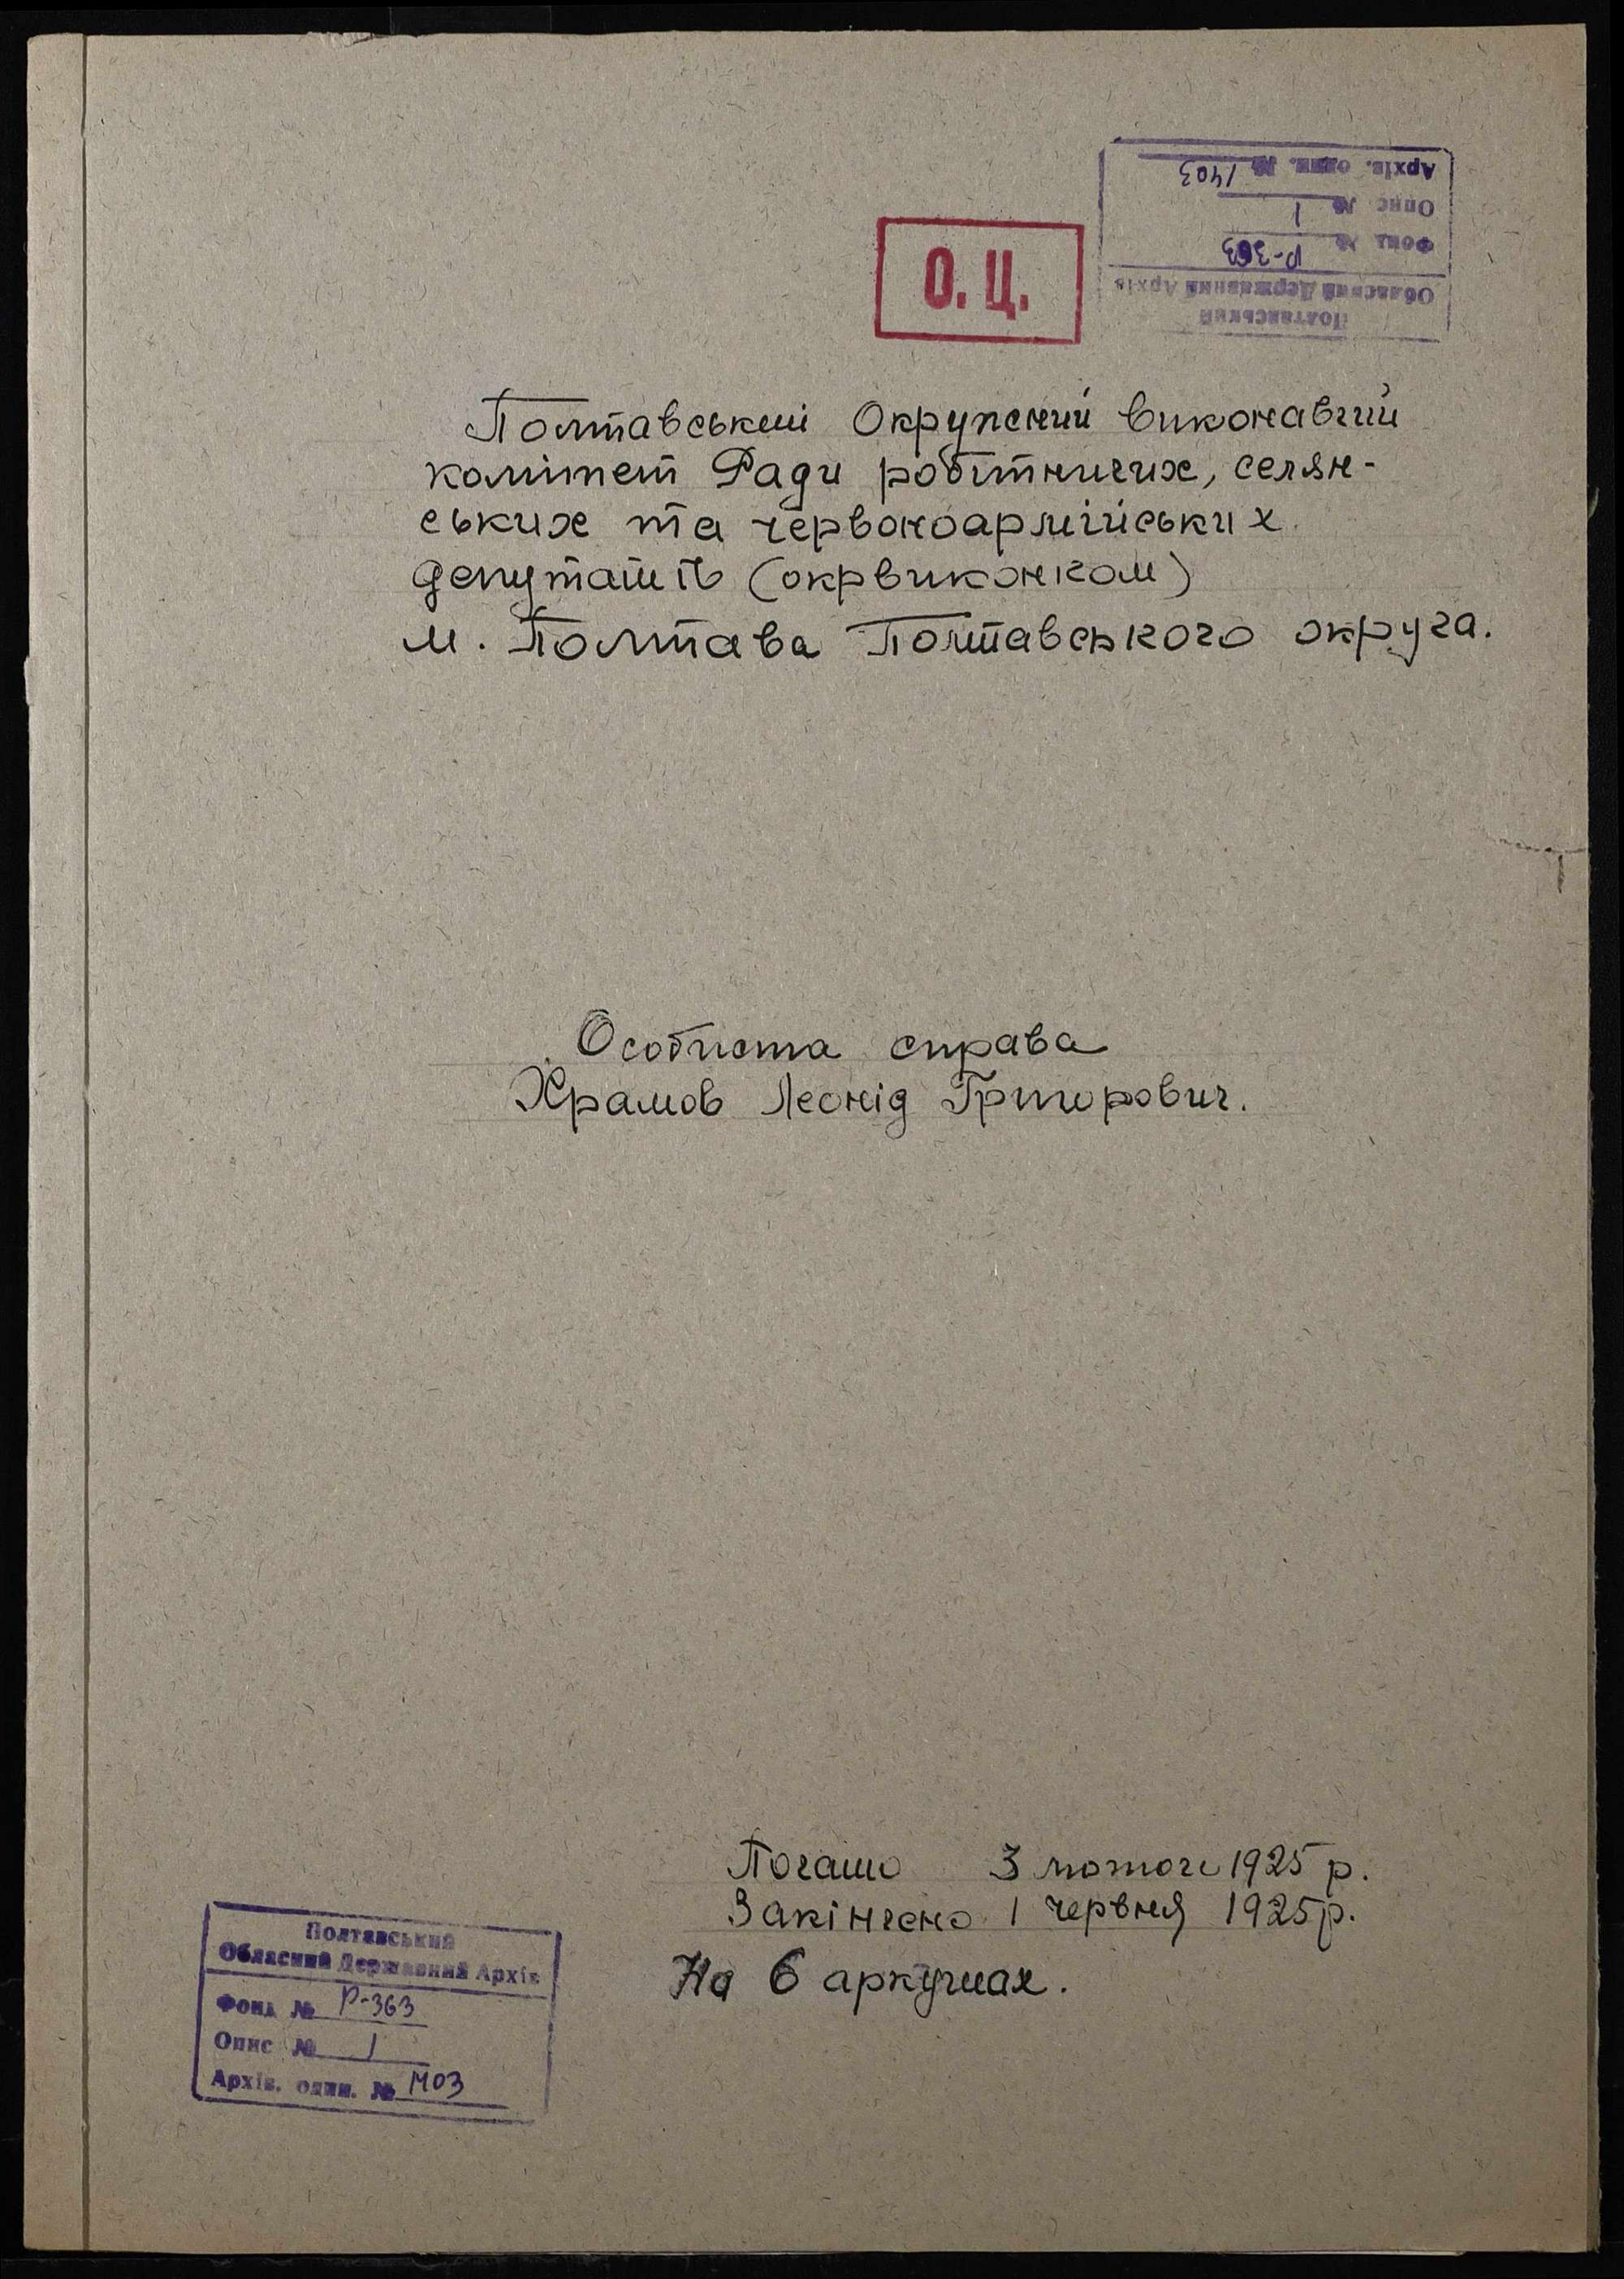 Полтавський
Обласний Державний Архів
Фонд № Р-363
Опис № 1
Архів. один. № 1403
О. Ц.
Полтавський Окружний виконавчий
комітет Ради робітничих, селян-
ських та червоноармійських
депутатів (окрвиконком)
м. Полтава Полтавського округа.
Особиста справа
Храмов Леонід Григорович.
Почато 3 лютого 1925 р.
Закінчено 1 червня 1925 р.
На 6 аркушах.
Полтавський
Обласний Державний Архів
Фонд № Р-363
Опис № 1
Архів. один. № 1403